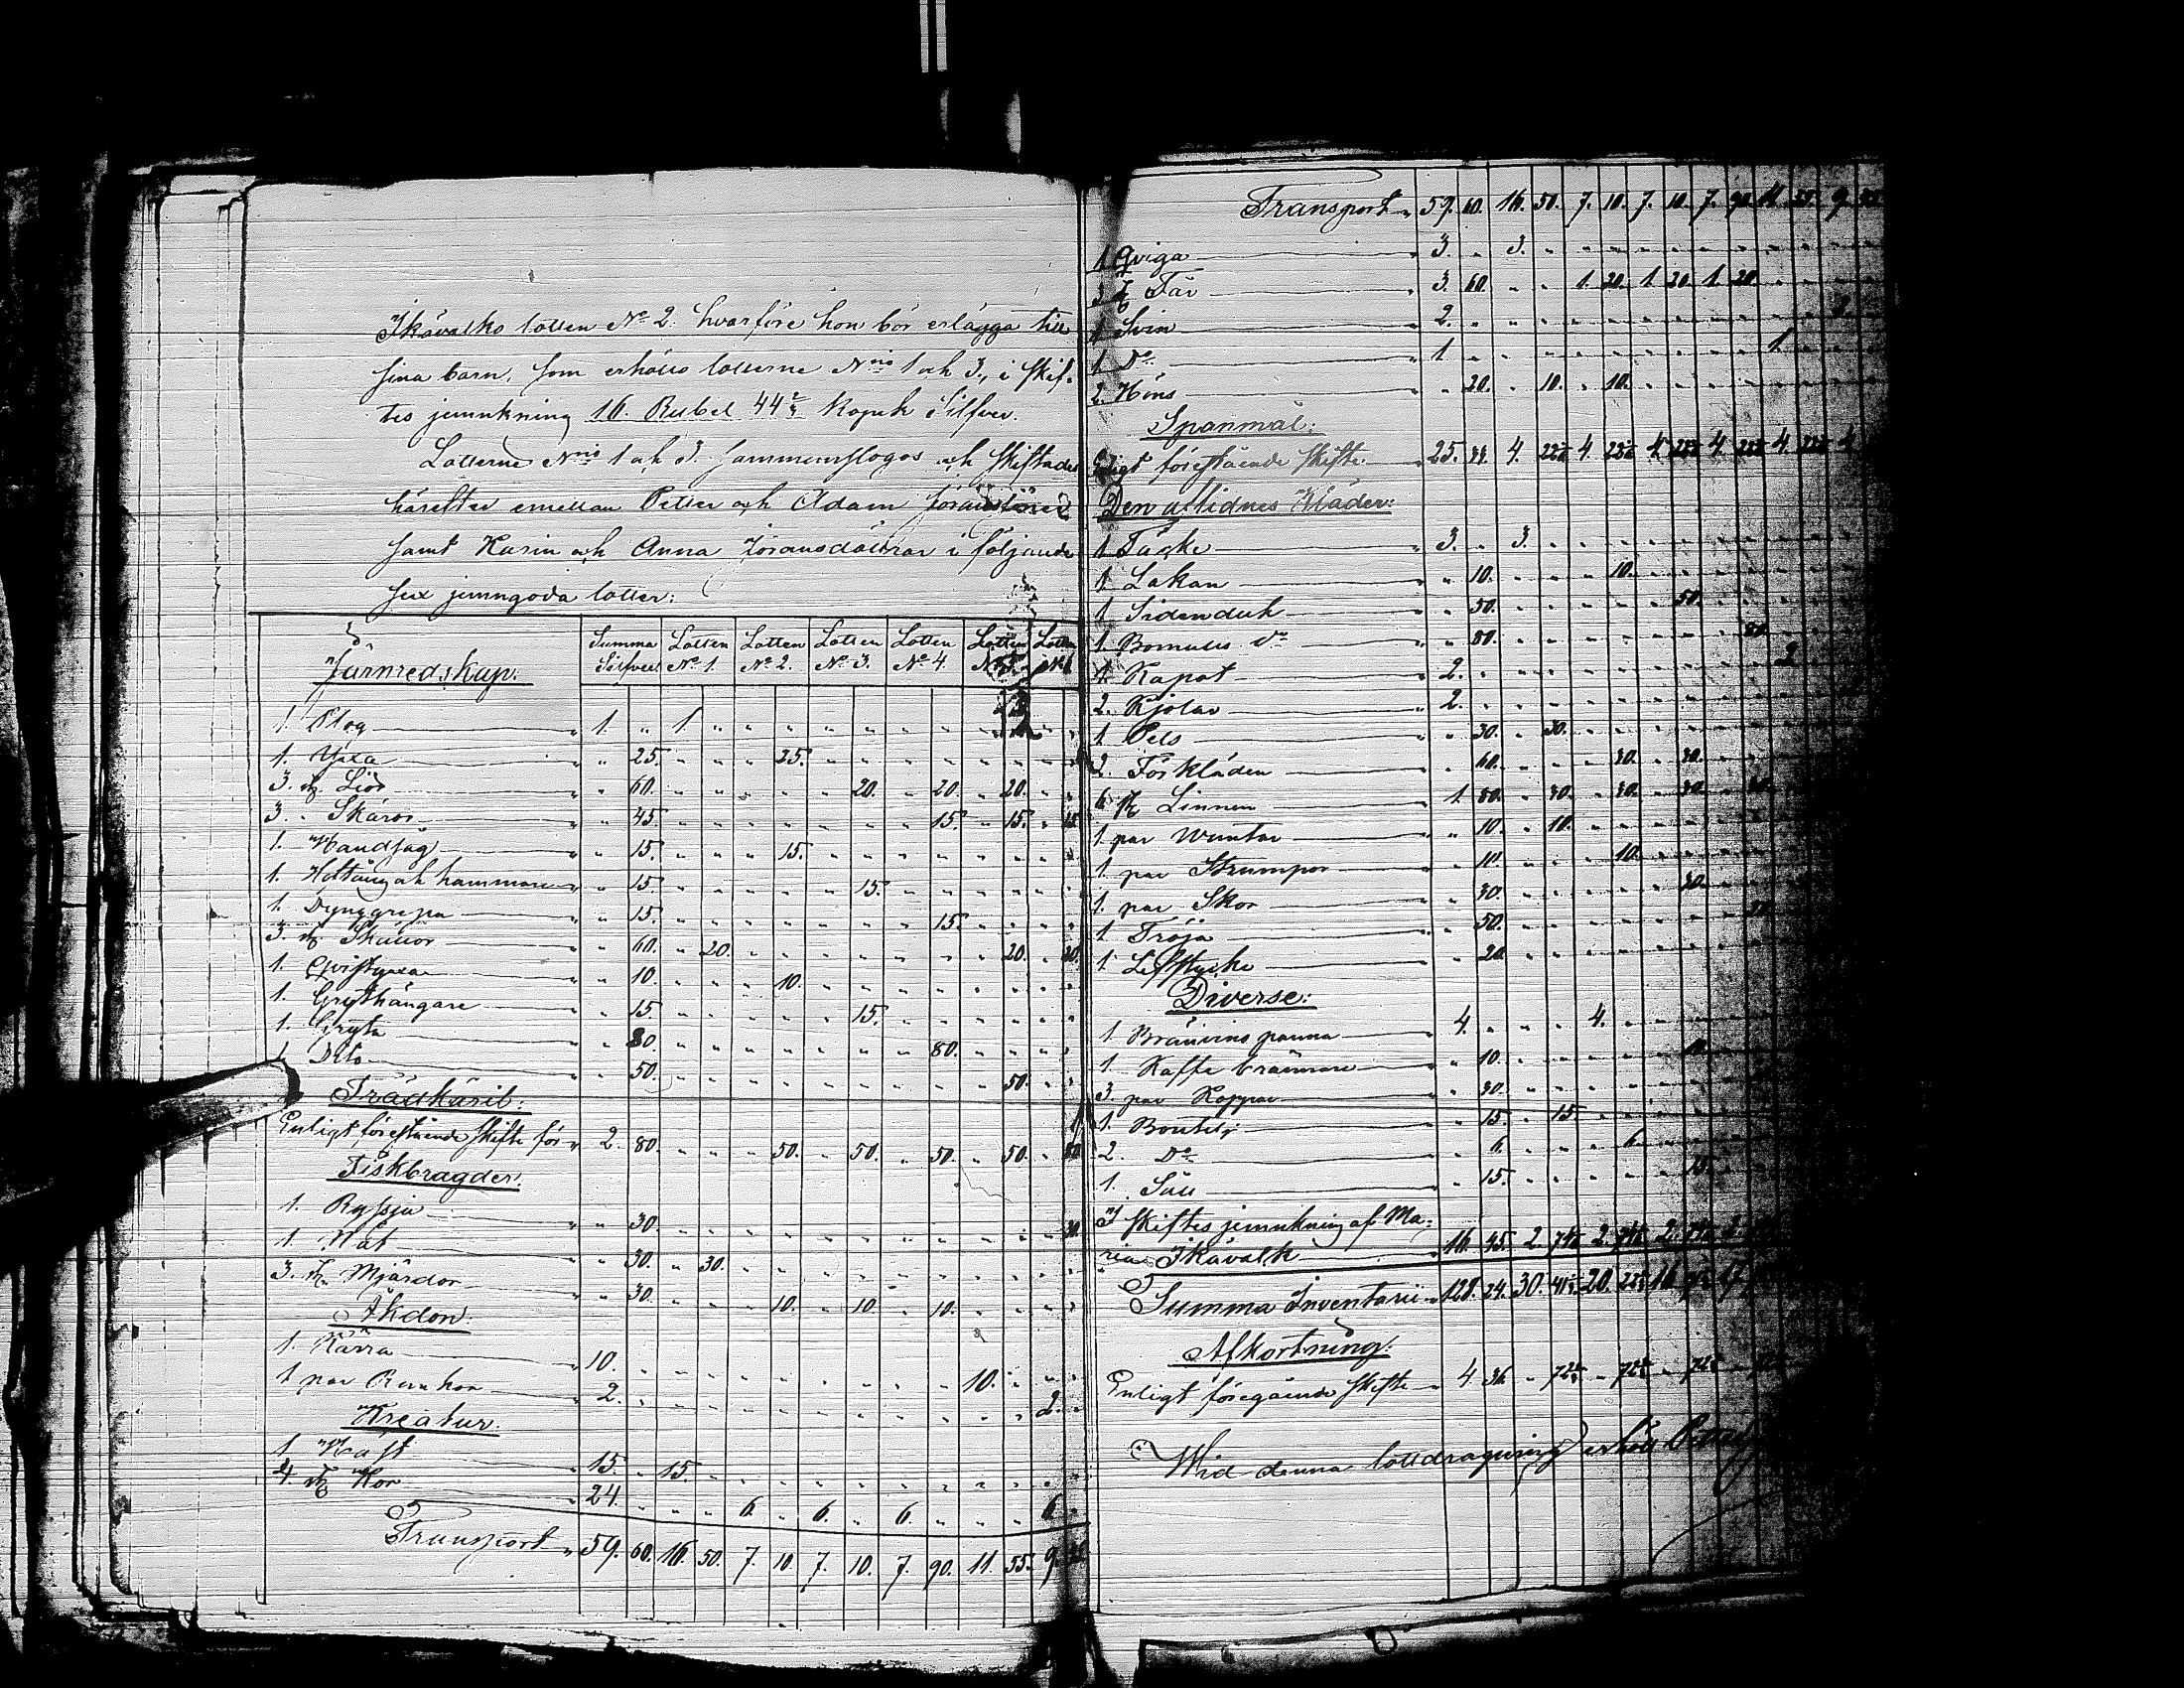 Skåvalko lotten No 2. hvarföre hon bör erlägga till
sina barn, som erhållo lotterne Nris 1 och 3, i skif-
tes jemnkning 16. Rubel 44 2/4 Kopek Silfver.
Lotterne Nris 1 och 3. sammanslogos och skiftades
härefter emellan Petter och Adam Göranssöner
samt Karin och Anna Göransdöttrar i följande
sex jemngoda lotter:
Järnredskap: Summa Silfver Lotten No 1. Lotten No 2. Lotten No 3. Lotten No 4. Lotten No 5. Lotten No 6
1. Plog 1. " 1. "
1. Yxa " 25. 25.
3. st. Liar " 60. 20. 20. 20.
3. " Skäror " 45. 15. 15. 15
1. Handsåg " 15. 15.
1. Hoftång och hammare " 15. 15.
1. Dynggrepa " 15. 15.
3. st. Skällor " 60. 20. 20. 20.
1. Qvistyxa " 10. 10.
1. Grythängare " 15. 15.
1. Gryta " 80. 80.
1. Dito " 50. 50.
Trädkäril:
Enligt förestående skifte för 2. 80. 50. 50. 50. 50. 80
Fiskbragder:
1. Ryssja " 30. 30.
1. Nät " 30. 30.
3. st. Mjärdor " 30. 10. 10. 10.
Åkdon:
1. Kärra 10. 10.
1 par 2. 2.
Kreatur:
1 Häst 15. 15.
4. st Kor 24. 6. 6. 6. 6.
Transport 59. 60. 16. 50. 7. 10. 7. 10. 7. 90. 11. 55. 9.
Transport 59. 60. 16. 50. 7. 10. 7. 10. 7. 90. 11. 55. 9.
1 Qviga 3. " 3.
3 st Får 3. 60. 1. 20. 1. 20. 1. 20.
1 Svin 2. 2.
1 Do 1. 1.
2. Höns " 20. 10. 10.
Spanmål:
Enligt förestående skifte 25. 4. 4. 4. 4. 4. 4
Den aflidnes Kläder:
1 Täcke 3. " 3.
1 Lakan " 10. 10.
1 Sidenduk " 50. 50.
1 Bomulls do " 80. 80.
1. Kapot 2. 2
2. Kjolar 2.
1 Pels " 30. 30.
2. Förkläden " 60. 30. 30.
6 st Linnen 1. 80. 30. 30. 30.
1 par Wantar " 10. 10.
1. par Strumpor " 10. 10.
1. par Skor " 30. 30.
1. Tröja " 50. 50.
1 Lifstycke " 20.
Diverse:
1 Bränvins panna 4. 4.
1. Kaffe brännare " 10. 10.
3. par Koppar " 30.
1. Boutelj " 15. 15.
2. Do " 6. 6.
1. Såll " 15. 15.
I skiftes jemnkning af Ma-
ria Skåvalk 16. 45. 2. 2. 2. 2.
Summa Inventarii 128. 24. 30. 20. 16. 17.
Afkortning:
Enligt föregående skifte 4. 36.
Wid denna lottdragning erhöll